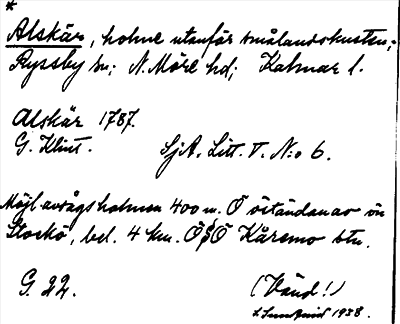 *
Alskär, holme utanför smålandskusten;
Ryssby sn; N. Möre hd; Kalmar l.
Alskär 1787.
G. Klint. SjA. Litt. V. N:o 6.
Möjl avsågsholmen 400 m. Ö östanda av ön
Stockö, bel. 4 km. Ö Kåremo stn.
G. 22. (Vänd!)
1938.